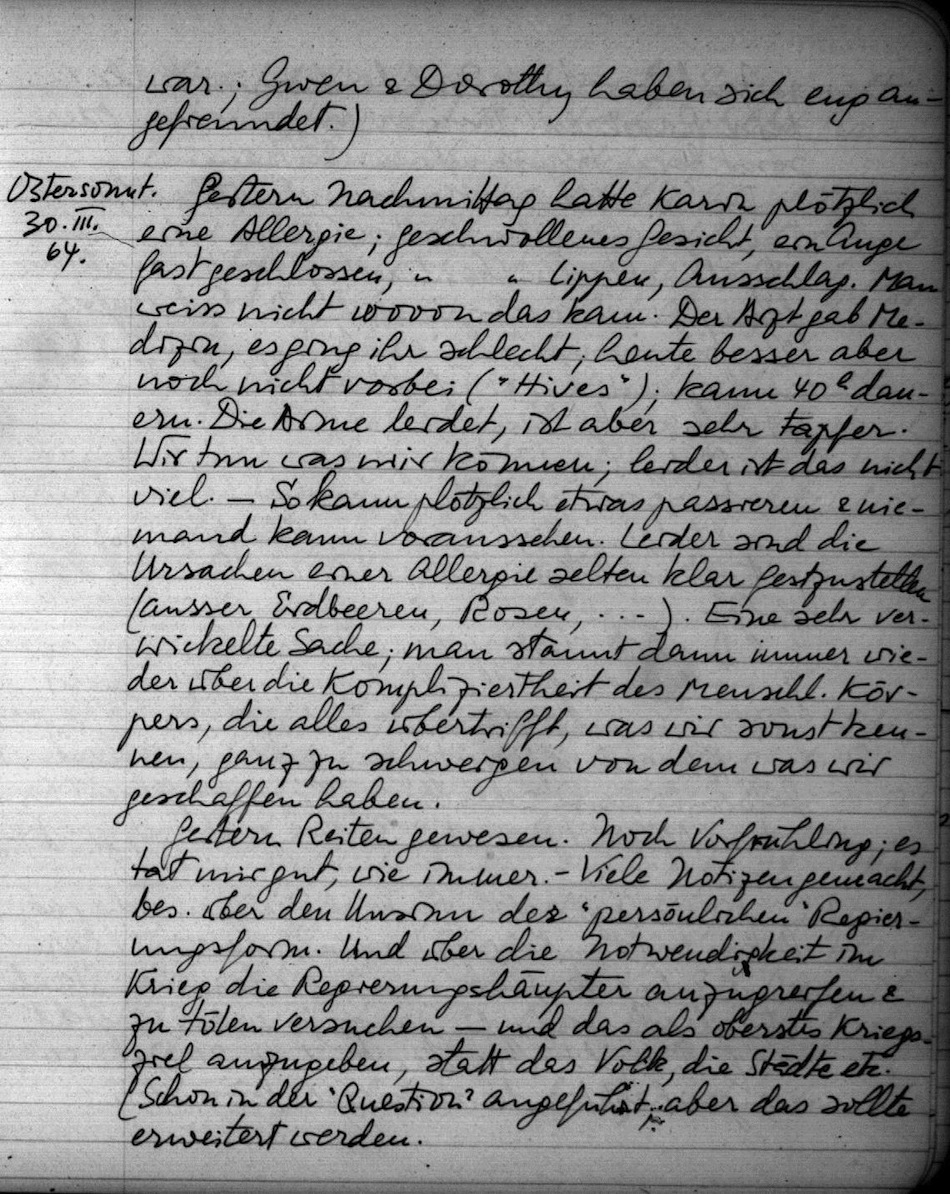 war.; Gwen & Dorothy haben sich eng an-
gefreundet.)
Ostersonnt.
30. III.
64.
Gestern Nachmittag hatte Karin plötzlich
eine Allergie; geschwollenes Gesicht, ein Auge
fast geschlossen, " " Lippen, Ausschlag. Man
weiss nicht wovon das kam. Der Arzt gab Me-
dizin, es ging ihr schlecht; heute besser aber
noch nicht vorbei ("Hives"); kann 40h dau-
ern. Die Arme leidet, ist aber sehr tapfer.
Wir tun was wir können; leider ist das nicht
viel. — So kann plötzlich etwas passieren & nie-
mand kann voraussehen. Leider sind die
Ursachen einer Allergie selten klar festzustellen
(ausser Erdbeeren, Rosen, ...). Eine sehr ver-
wickelte Sache; man staunt dann immer wie-
der über die Kompliziertheit des menschl. Kör-
pers, die alles übertrifft, was wir sonst ken-
nen, ganz zu schweigen von dem was wir
geschaffen haben.
Gestern Reiten gewesen. Noch Vorfrühling; es
tat mir gut, wie immer. - Viele Notizen gemacht,
bes. über den Unsinn der "persönlichen" Regier-
ungsform. Und über die Notwendigkeit im
Krieg die Regierungshäupter anzugreifen &
zu töten versuchen — und das als oberstes Kriegs-
ziel anzugeben, statt das Volk, die Städte etc.
(Schon in der "Question" angeführt, aber das sollte
erweitert werden.